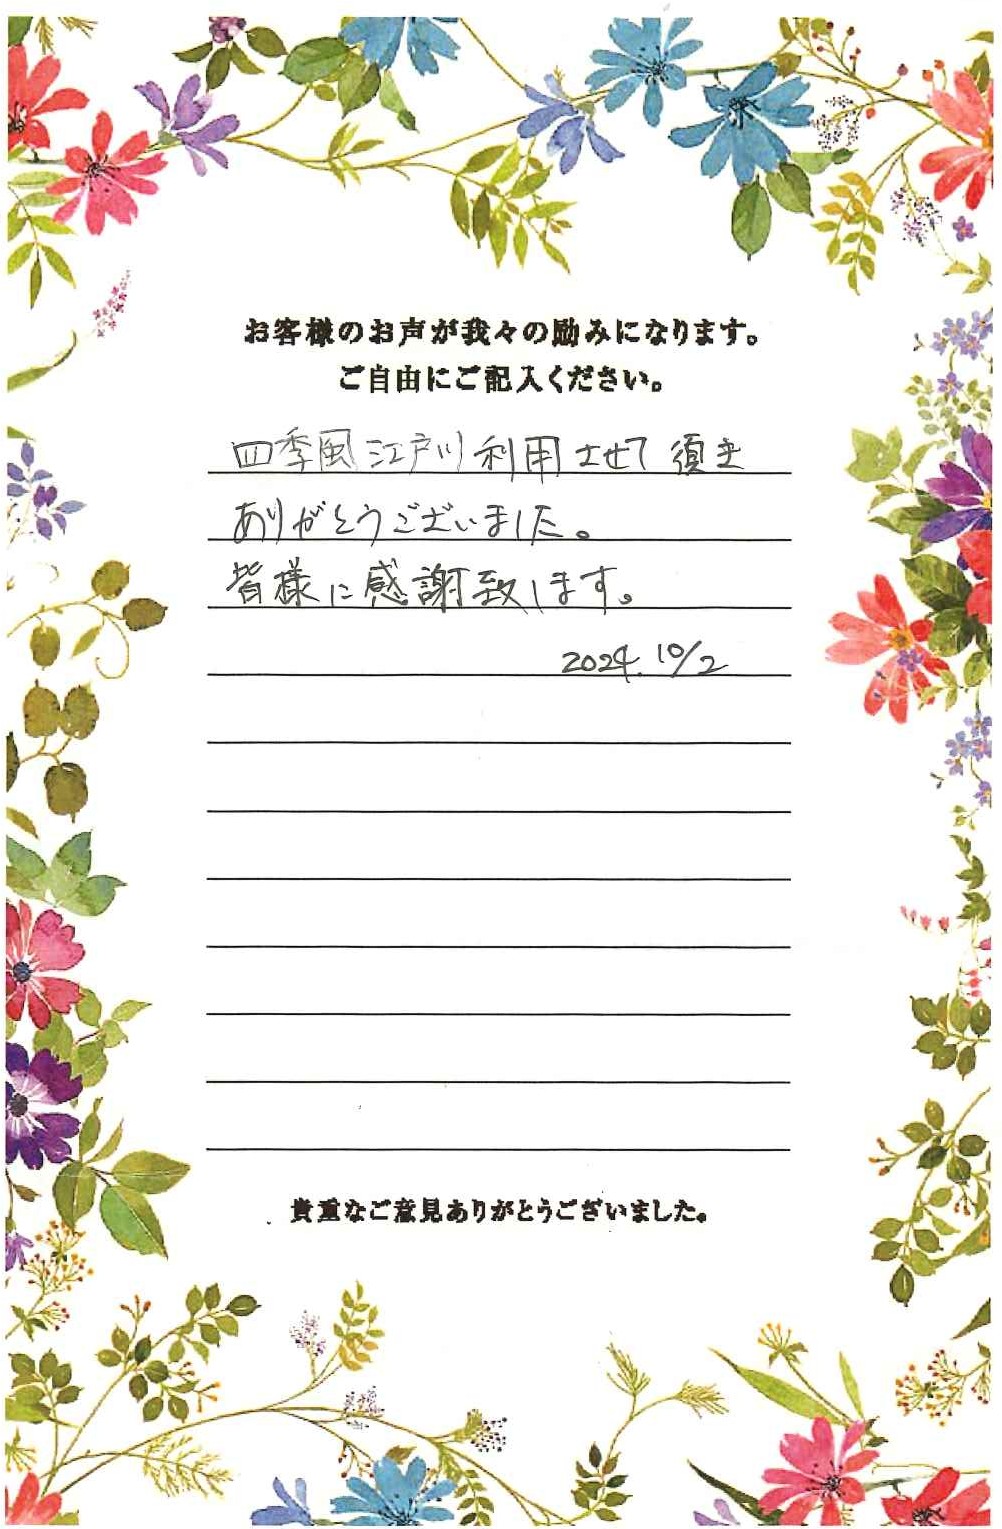 お客様のお声が我々の励みになります。
ご自由にご記入ください。
四季風江戸川利用させて須き
ありがとうございました。
皆様に感謝致します。
2024. 10/2
貴重なご意見ありがとうございました。